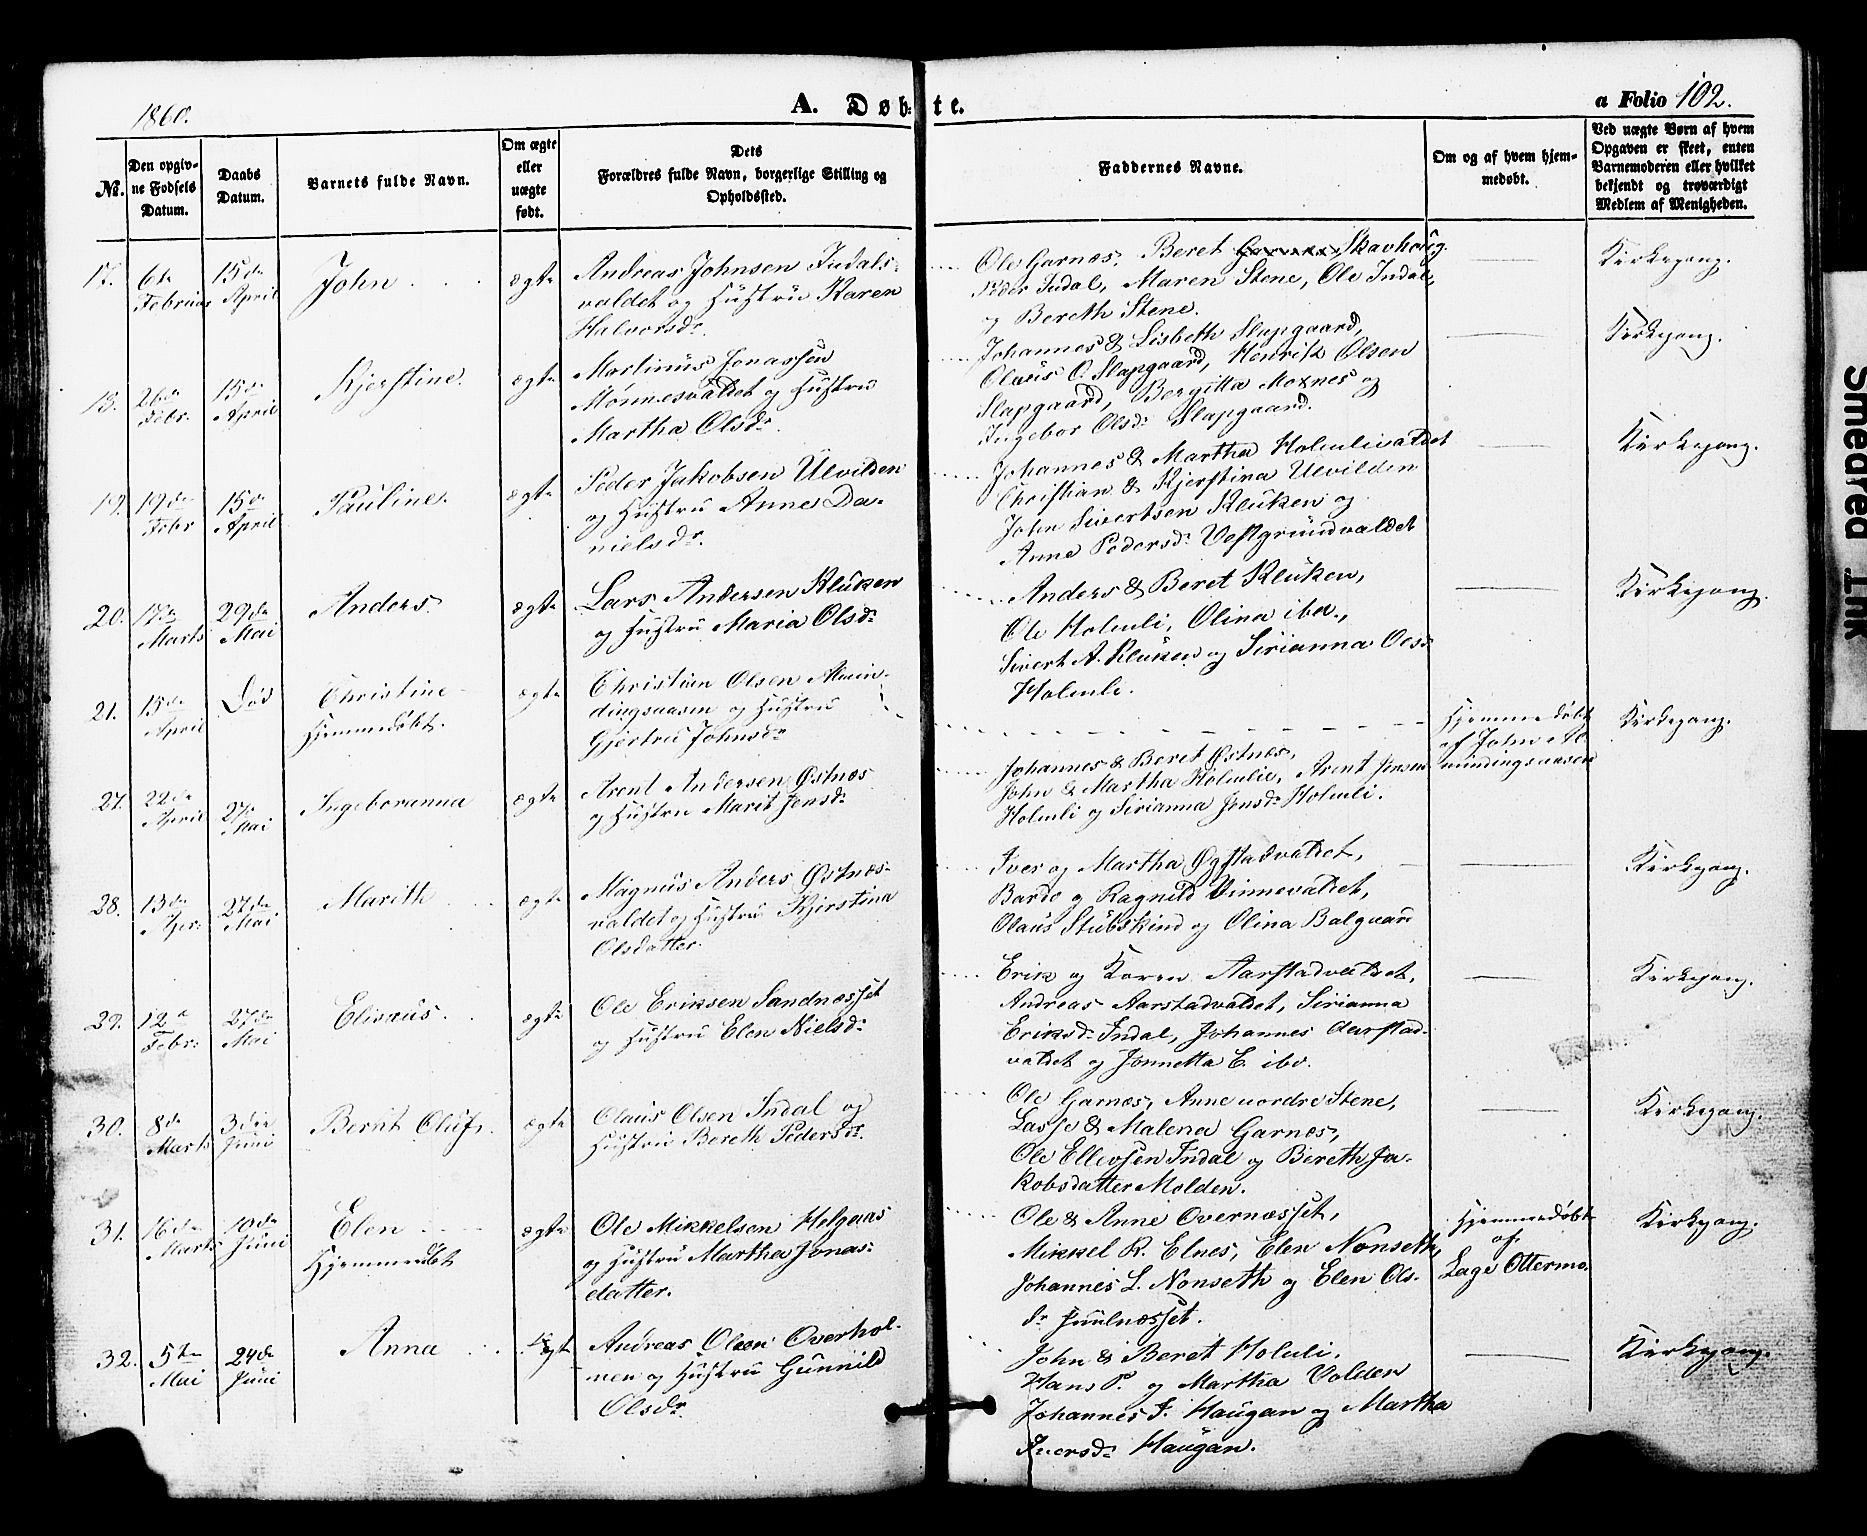 1860.
A. Døbte.
a Folio 102.
No.
Den opgivne Fødsels Datum.
Daabs Datum.
Barnets fulde Navn.
Om ægte eller uægte født.
Dets Forældres fulde Navn, borgerlige Stilling og Opholdssted.
Faddernes Navne.
Om og af hvem hjemmedøbt.
Ved uægte Børn af hvem Opgaven er skeet, enten Barnemoderen eller hvilket bekjendt og troværdigt Medlem af Menigheden.
17. 6te Februar 15de April John ægte
Andreas Johnsen Indals-
valdet og Hustru Karen
Halvorsdr.
Ole Garnæs, Beret Garnæs Skavhoug
Peder Indal, Maren Stene, Ole Indal,
og Bereth Stene.
Kirkegang.
18. 26de Febr. 15de April Kjerstine. ægte
Martinus Jonassen
Mönnesvaldet og Hustru
Martha Olsdr.
Johannes & Lisbeth Slapgaard,
Olaus O. Slapgaard, Henrik Olsen
Slapgaard, Bergitta Moxnes og
Ingebor Olsdr Slapgaard.
Kirkegang.
19. 19de Febr 15de April Pauline. ægte
Peder Jakobsen Ulvilden
og Hustru Anne Da-
nielsdr.
Johannes & Martha Holmlivaldet
Christian & Kjerstina Ulvilden
John Sivertsen Kluken og
Anne Pedersdr Vestgrundvaldet
Kirkegang.
20. 17de Marts 29de Mai Anders ægte
Lars Andersen Kluken
og Hustru Maria Olsdr
Anders & Beret Kluken,
Ole Holmli, Olina ibd.,
Sivert A. Kluken og Sirianna Olsdr
Holmli.
Kirkegang.
21. 15de April Død Christine
Hjemmedøbt. ægte
Christian Olsen Main-
dingsaasen og Hustru
Gjertru Johnsdr
Hjemmedøbt
af John
Kirkegang.
27. 22de April 27de Mai Ingeboranna ægte
Arent Andersen Østnæs
og Hustru Marit Jensdr
Johannes & Beret Østnæs,
John & Martha Holmlie, Arent Jensen
Holmli og Sirianna Jensdr Holmli.
28. 13de Apr: 27de Mai Marith ægte
Magnus Anders Østnæs-
valdet og Hustru Kjerstina
Olsdatter.
Iver og Martha Øgstadvaldet,
Bardo og Ragnild Vinnevaldet,
Olaus Stubskind og Olina Balgaard
Kirkegang.
29. 12te Febr: 27de Mai Elisæus ægte
Ole Eriksen Sandnæsset
og Hustru Elen Nielsdr
Erik og Karen Aarstadvaldet,
Andreas Aarstadvaldet, Sirianna
Eriksdr Indal, Johannes Aarstad-
valdet og Jonnetta E. ibd.
Kirkegang.
30. 8de Marts 3die Juni Bernt Oluf. ægte
Olaus Olsen Indal og
Hustru Bereth Pedersdr.
Ole Garnæs, Anne nordre Stene,
Lasse & Malena Garnæs,
Ole Ellevsen Indal og Bereth Ja-
kobsdatter Molden.
Kirkegang.
31. 16de Marts 10de Juni Elen
Hjemmedøbt ægte
Ole Mikkelsen Helgaas
og Hustru Martha Jonas-
datter.
Ole & Anne Overnæsset,
Mikkel R. Elnes, Elen Nonseth,
Johannes L. Nonseth og Elen Ols-
dr Juulnæsset.
Hjemmedøbt
af
Lage Ottermo.
Kirkegang.
32. 5te Mai 24de Juni Anna ægt
Andreas Olsen Overhol-
men og Hustru Gunnild
Olsdr.
John & Beret Holmli,
Hans P. og Martha Volden
Johannes I. Haugan og Martha
Iversdr Haugan.
Kirkegang.
Smeared Ink